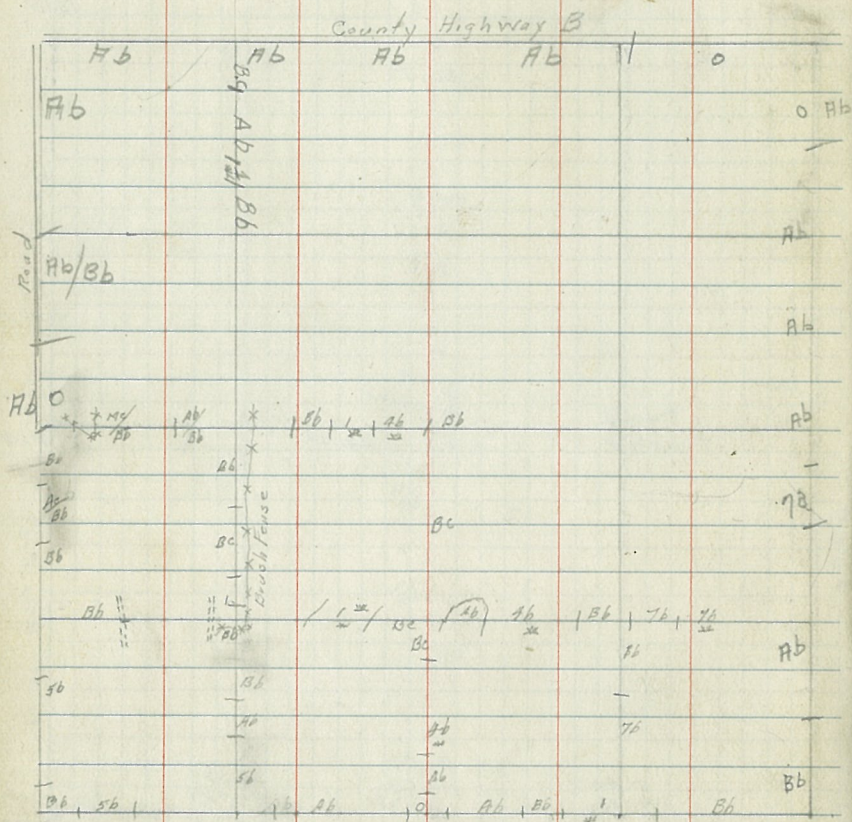 County Highway B
Ab Ab Ab Ab 0
Ab 0 Ab
Bg Ab Bb
Ab
Road
Ab/Bb
Ab
Ab 0
Ac/Bb Ab/Bb Bb 4b Bb Ab
Bb Bb
Ac/Bb Bc
Bc
Bb
Brush Fence
Bb Bb 1 Bc Ab 4b Bb 7b 7b
Bc Bb Ab
5b Bb
Ab 4b 7b
5b Bb Bb
Bb 5b b Ab 0 Ab Bb 1 Bb